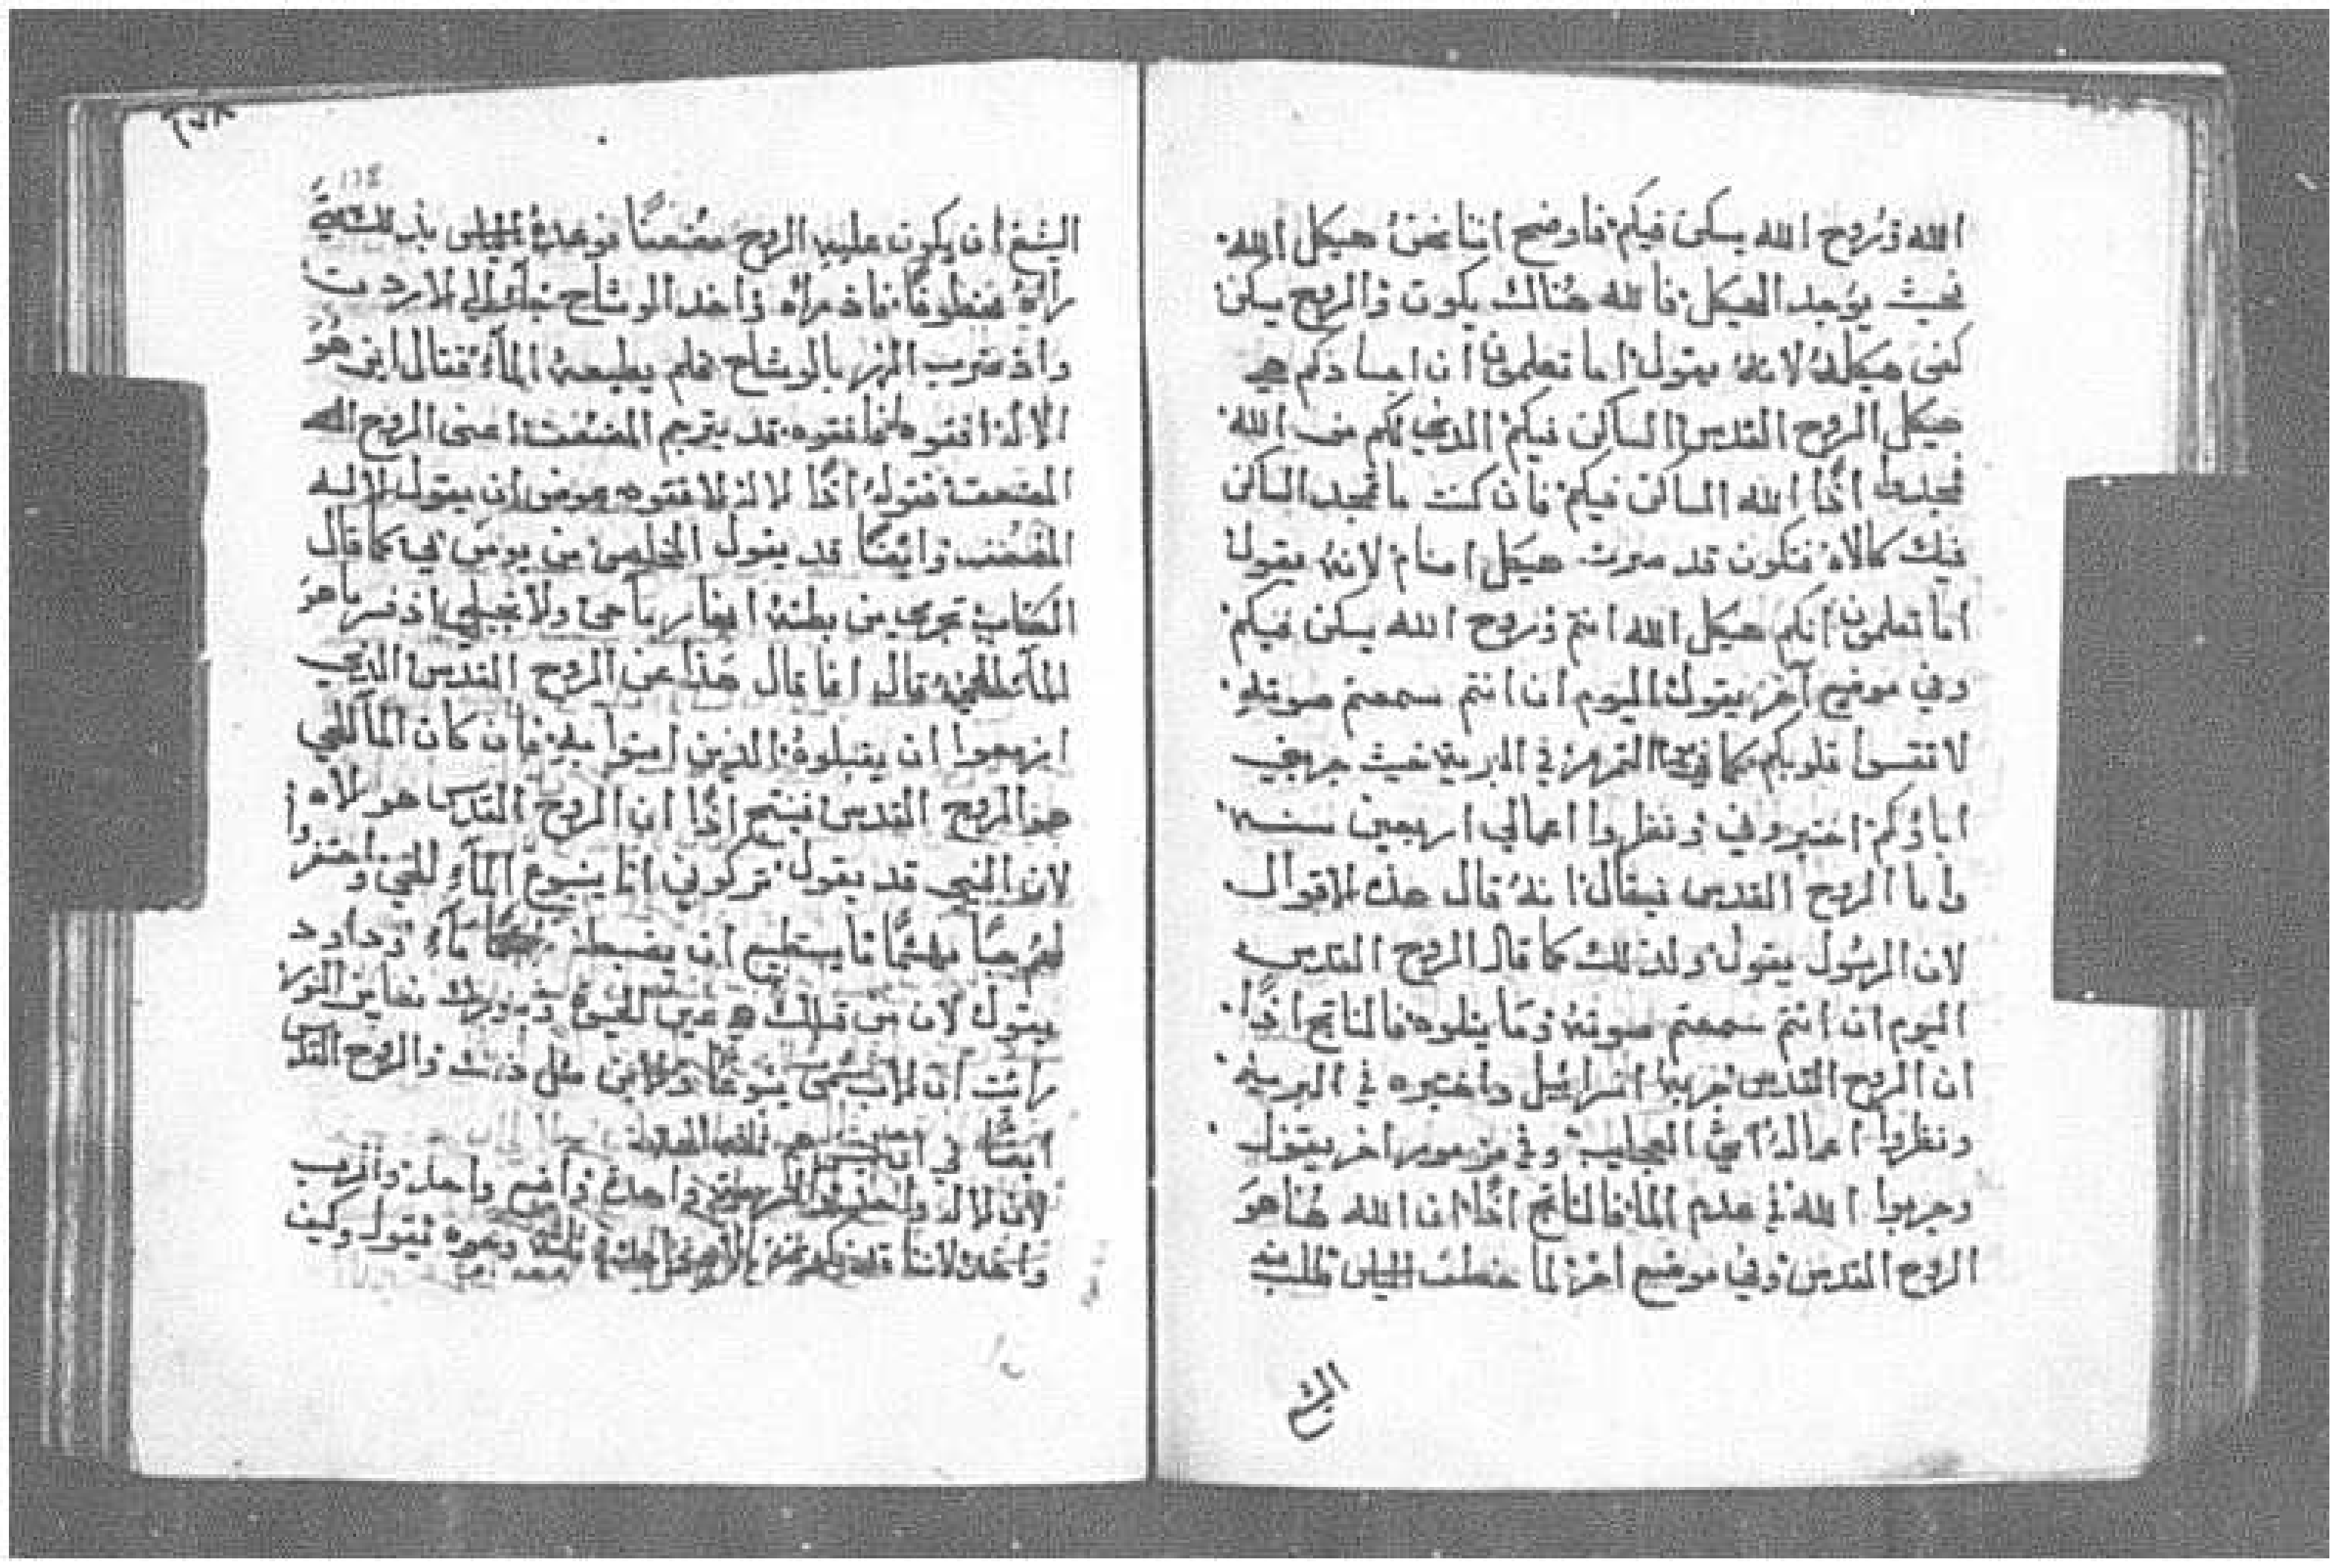 الله وروح الله يسكن فيكم فاوضح اننا نحن هيكل الله
فحيث يوجد الهيكل فالله هنالك يكون والروح يسكن
كفى هيكله لانه يقول اما تعلمون ان اجسادكم هي
هيكل الروح القدس الساكن فيكم الذي لكم من الله
اذًا الله الساكن فيكم فان كنت ما تمجد الساكن
فيك كالاه فتكون قد صرت هيكل اصنام لانه يقول
اما تعلمون انكم هيكل الله انتم وروح الله يسكن فيكم
وفي موضع آخر يقول اليوم ان انتم سمعتم صوته
لا تقسوا قلوبكم كما في التمرمر في البرية حيث جربني
اباؤكم اختبروني ونظروا اعمالي اربعين سنه
واما الروح القدس فيقال انه قال هذه الاقوال
لان الرسول يقول ولذلك كما قال الروح القدس
اليوم ان انتم سمعتم صوته وما يتلوه فالناتج اذًا
ان الروح القدس جربه اسرائيل واختبره في البريه
ونظروا اعماله العجايب وفي مزمور اخر يقول
وجربوا الله في عدم الما فالناتج اذًا ان الله هنا هو
الروح القدس وفي موضع اخر لما خطف الياس طلب منه
اليشع
٢٧٨
138
اليشع ان يكون عليه الروح مضعفًا فوعده بذلك
رآه مخطوفًا فاذ رآه واخذ الوشاح فجآء الى الاردن
واذ ضرب النهر بالوشاح فلم يطيعه المآء فقال اين هو
الاله افقوه افقوه قد يترجم المضعف اعني الروح
المضعف فقوله اذًا الاله افقوه عوض ان يقول الاله
المضعف وايضًا قد يقول المخلص من يومن بي كما قال
الكتاب تجري من بطنه انهار مآ حي اذ فسر ما هو
المآء قال انما قال هذا عن الروح القدس الذي
ازمعوا ان يقبلوه الذين امنوا به فان كان المآء الحي
هو الروح القدس فينتج اذًا ان الروح القدس هو الاه
لان النبي قد يقول تركوني انا ينبوع المآء الحي واحتفروا
لهم جبًا مهشمًا ما يستطيع ان يضبط مآء وداود
يقول لان من قبلك هي عين الحيوة وبنورك نعاين النور
رأيت ان الاب يسمى ينبوعًا والابن مثل ذلك والروح القدس
ايضًا
لان الاله واحد واحدة واحد والرب
واحد لاننا فيقول وكيف